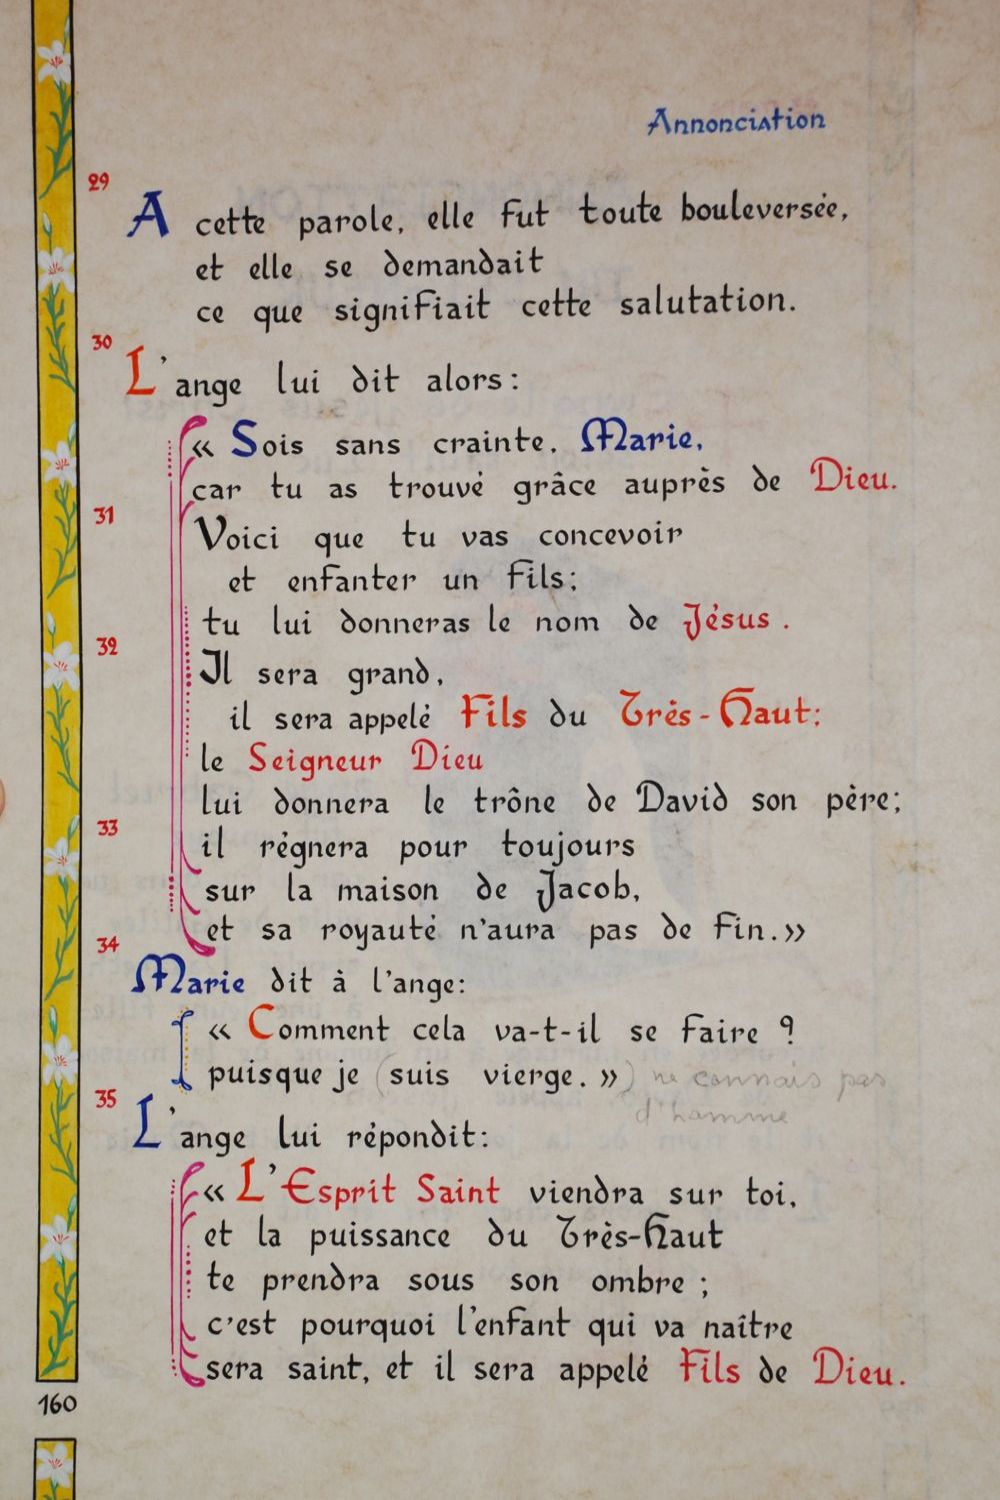 Annonciation
29
A cette parole, elle fut toute bouleversée,
et elle se demandait
ce que signifiait cette salutation.
30
L'ange lui dit alors:
« Sois sans crainte, Marie,
car tu as trouvé grâce auprès de Dieu.
31
Voici que tu vas concevoir
et enfanter un fils;
tu lui donneras le nom de Jésus.
32
Il sera grand,
il sera appelé Fils du Très-Haut;
le Seigneur Dieu
lui donnera le trône de David son père;
33
il régnera pour toujours
sur la maison de Jacob,
et sa royauté n'aura pas de fin.»
34
Marie dit à l'ange:
« Comment cela va-t-il se faire ?
puisque je (suis vierge. ») ne connais pas
d'homme
35
L'ange lui répondit:
« L'Esprit Saint viendra sur toi,
et la puissance du Très-Haut
te prendra sous son ombre ;
c'est pourquoi l'enfant qui va naître
sera saint, et il sera appelé Fils de Dieu.
160